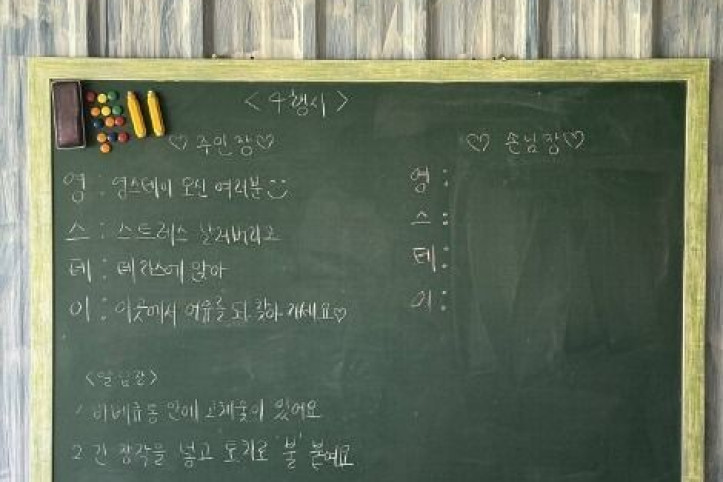 <4행시>
♡ 주인장 ♡
영 : 영스테이 오신 여러분
스 : 스트레스 날려버리고
테 : 테라스에 앉아
이 : 이곳에서 여유를 되찾아 가세요♡
♡ 손님장 ♡
영 :
스 :
테 :
이 :
<알림판>
1 바베큐통 안에 고체숯이 있어요
2 긴 장작을 넣고 토치로 '불' 붙여요